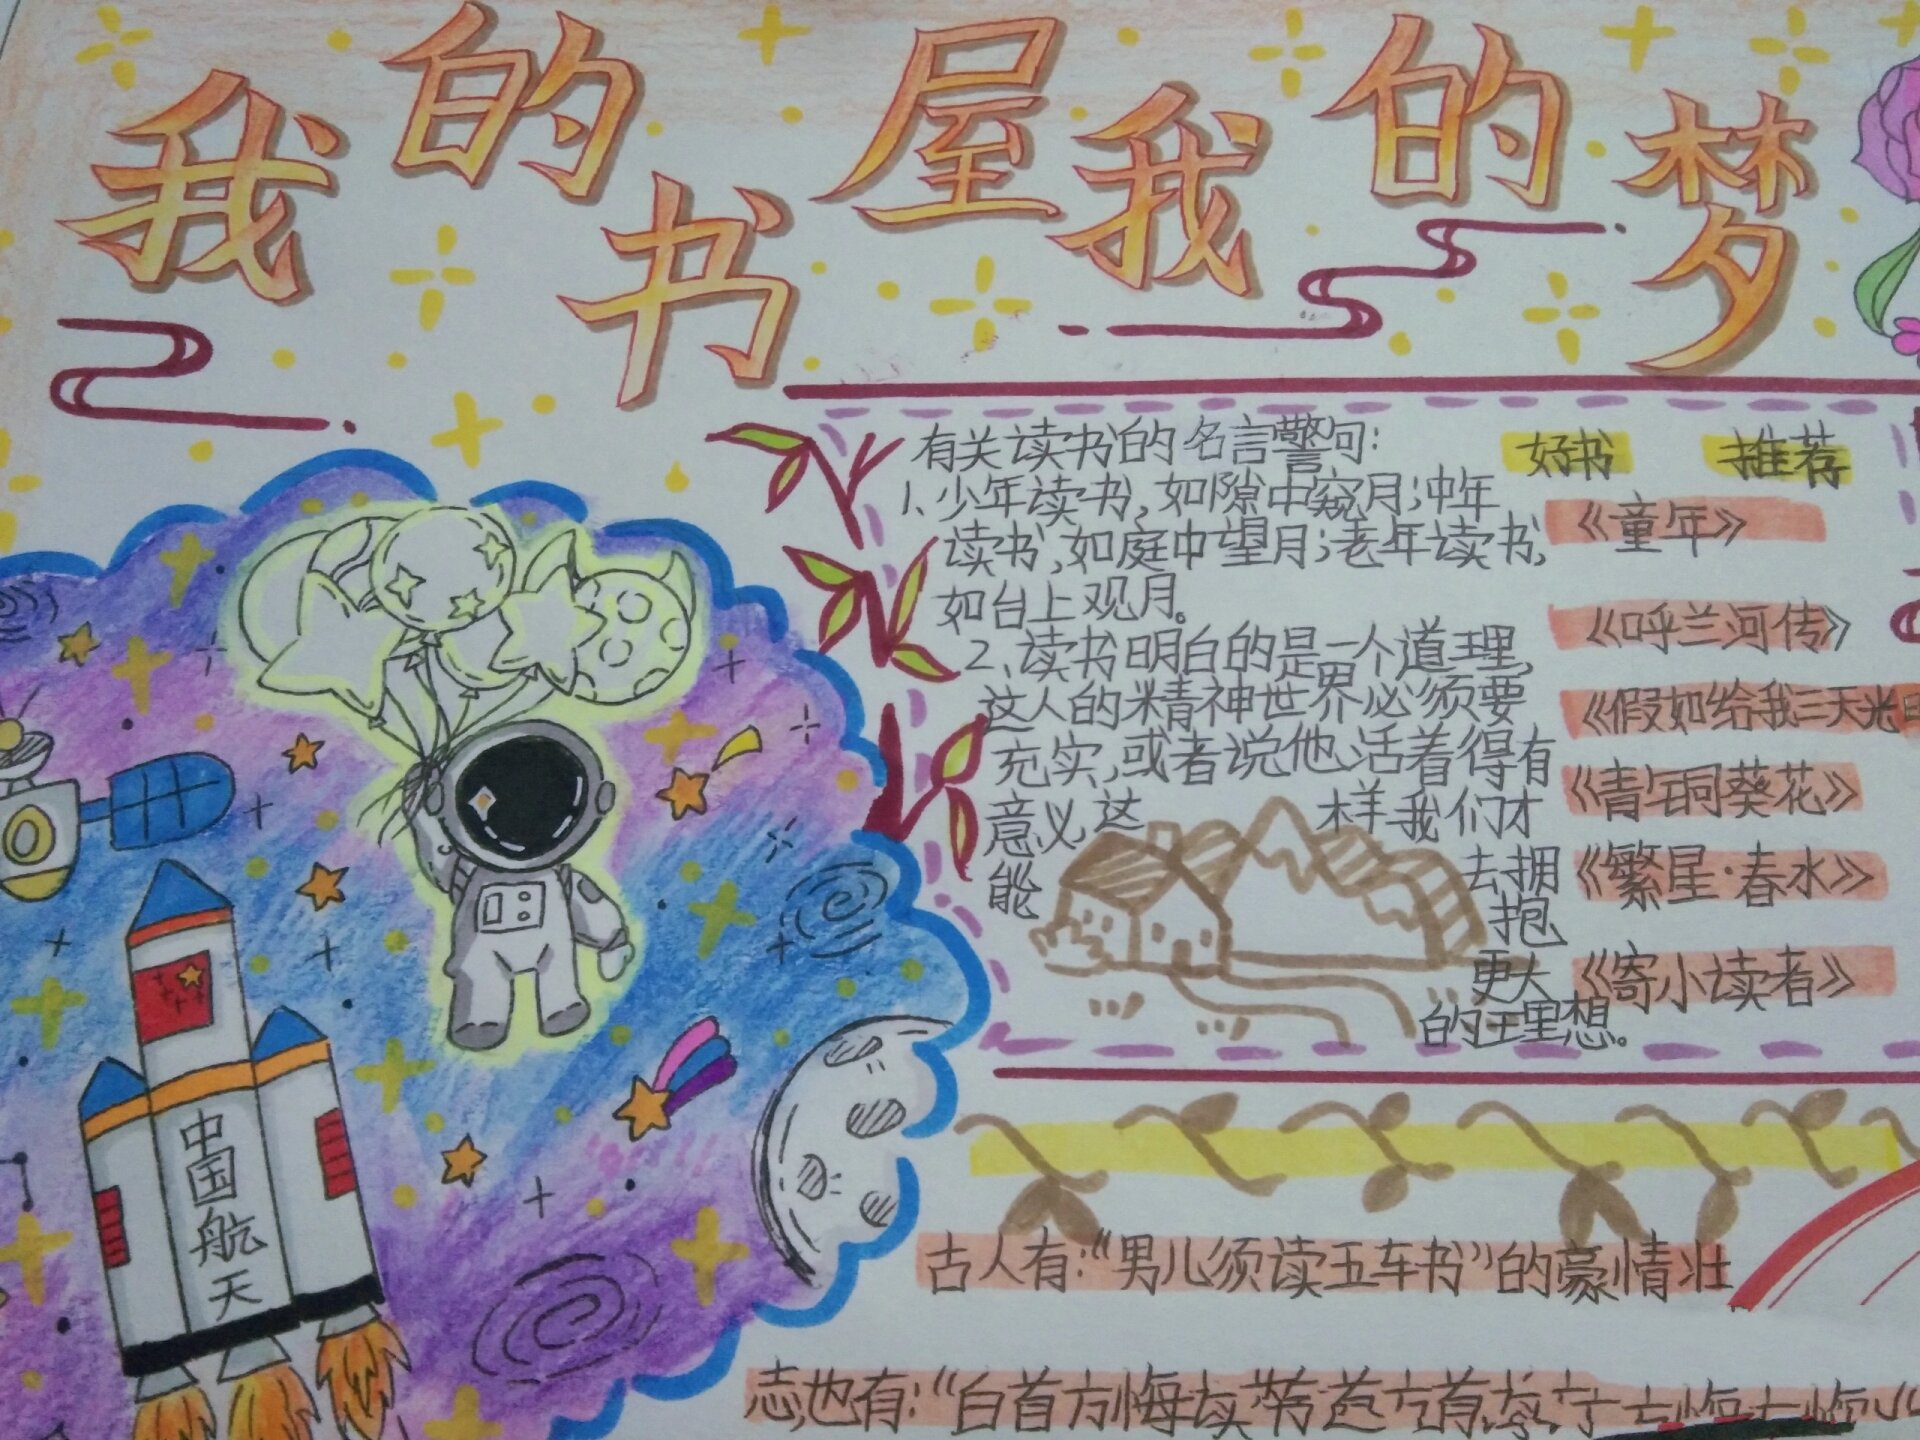 我的书屋我的梦
有关读书的名言警句：
1、少年读书，如隙中窥月；中年
读书，如庭中望月；老年读书，
如台上观月。
2、读书明白的是一个道理，
这人的精神世界必须要
充实，或者说他活着得有
意义，这样我们才
能去拥
抱
更大
的理想。
好书 推荐
《童年》
《呼兰河传》
《假如给我三天光
《青铜葵花》
《繁星·春水》
《寄小读者》
中国航天
古人有：“男儿须读五车书”的豪情壮
志，也有：“白首方悔读